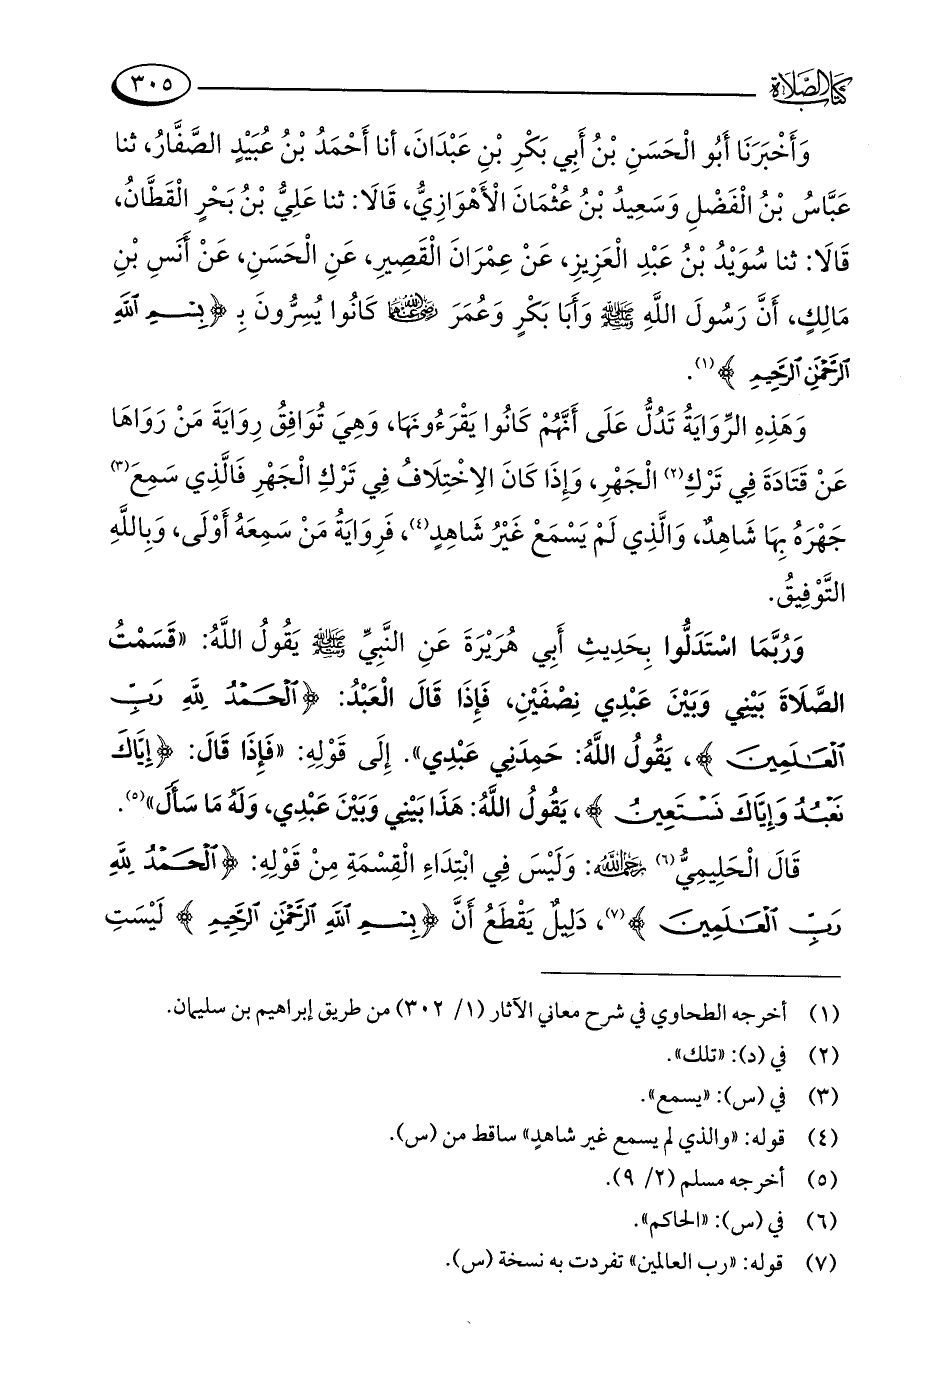 كتاب الصلاة
٣٠٥
وَأَخْبَرَنَا أَبُو الْحَسَنِ بْنُ أَبِي بَكْرِ بْنِ عَبْدَانَ، أنا أَحْمَدُ بْنُ عُبَيْدٍ الصَّفَّارُ، ثنا
عَبَّاسُ بْنُ الْفَضْلِ وَسَعِيدُ بْنُ عُثْمَانَ الْأَهْوَازِيُّ، قَالَا: ثنا عَلِيُّ بْنُ بَحْرٍ الْقَطَّانُ،
قَالَا: ثنا سُوَيْدُ بْنُ عَبْدِ الْعَزِيزِ، عَنْ عِمْرَانَ الْقَصِيرِ، عَنِ الْحَسَنِ، عَنْ أَنَسِ بْنِ
مَالِكٍ، أَنَّ رَسُولَ اللَّهِ ﷺ وَأَبَا بَكْرٍ وَعُمَرَ رضي الله عنهما كَانُوا يُسِرُّونَ بِـ ﴿بِسْمِ ٱللَّهِ
ٱلرَّحْمَٰنِ ٱلرَّحِيمِ ﴾(١).
وَهَذِهِ الرِّوَايَةُ تَدُلُّ عَلَى أَنَّهُمْ كَانُوا يَقْرَءُونَهَا، وَهِيَ تُوَافِقُ رِوَايَةَ مَنْ رَوَاهَا
عَنْ قَتَادَةَ فِي تَرْكِ(٢) الْجَهْرِ، وَإِذَا كَانَ الِاخْتِلَافُ فِي تَرْكِ الْجَهْرِ فَالَّذِي سَمِعَ(٣)
جَهْرَهُ بِهَا شَاهِدٌ، وَالَّذِي لَمْ يَسْمَعْ غَيْرُ شَاهِدٍ(٤)، فَرِوَايَةُ مَنْ سَمِعَهُ أَوْلَى، وَبِاللَّهِ
التَّوْفِيقُ.
وَرُبَّمَا اسْتَدَلُّوا بِحَدِيثِ أَبِي هُرَيْرَةَ عَنِ النَّبِيِّ ﷺ يَقُولُ اللَّهُ: «قَسَمْتُ
الصَّلَاةَ بَيْنِي وَبَيْنَ عَبْدِي نِصْفَيْنِ، فَإِذَا قَالَ الْعَبْدُ: ﴿ٱلْحَمْدُ لِلَّهِ رَبِّ
ٱلْعَٰلَمِينَ ﴾، يَقُولُ اللَّهُ: حَمِدَنِي عَبْدِي». إِلَى قَوْلِهِ: «فَإِذَا قَالَ: ﴿إِيَّاكَ
نَعْبُدُ وَإِيَّاكَ نَسْتَعِينُ ﴾، يَقُولُ اللَّهُ: هَذَا بَيْنِي وَبَيْنَ عَبْدِي، وَلَهُ مَا سَأَلَ»(٥).
قَالَ الْحَلِيمِيُّ(٦) رحمه الله: وَلَيْسَ فِي ابْتِدَاءِ الْقِسْمَةِ مِنْ قَوْلِهِ: ﴿ٱلْحَمْدُ لِلَّهِ
رَبِّ ٱلْعَٰلَمِينَ ﴾(٧)، دَلِيلٌ يَقْطَعُ أَنَّ ﴿بِسْمِ ٱللَّهِ ٱلرَّحْمَٰنِ ٱلرَّحِيمِ ﴾ لَيْسَتِ
(١) أخرجه الطحاوي في شرح معاني الآثار (١/ ٣٠٢) من طريق إبراهيم بن سليمان.
(٢) في (د): «تلك».
(٣) في (س): «يسمع».
(٤) قوله: «والذي لم يسمع غير شاهد» ساقط من (س).
(٥) أخرجه مسلم (٢/ ٩).
(٦) في (س): «الحاكم».
(٧) قوله: «رب العالمين» تفردت به نسخة (س).